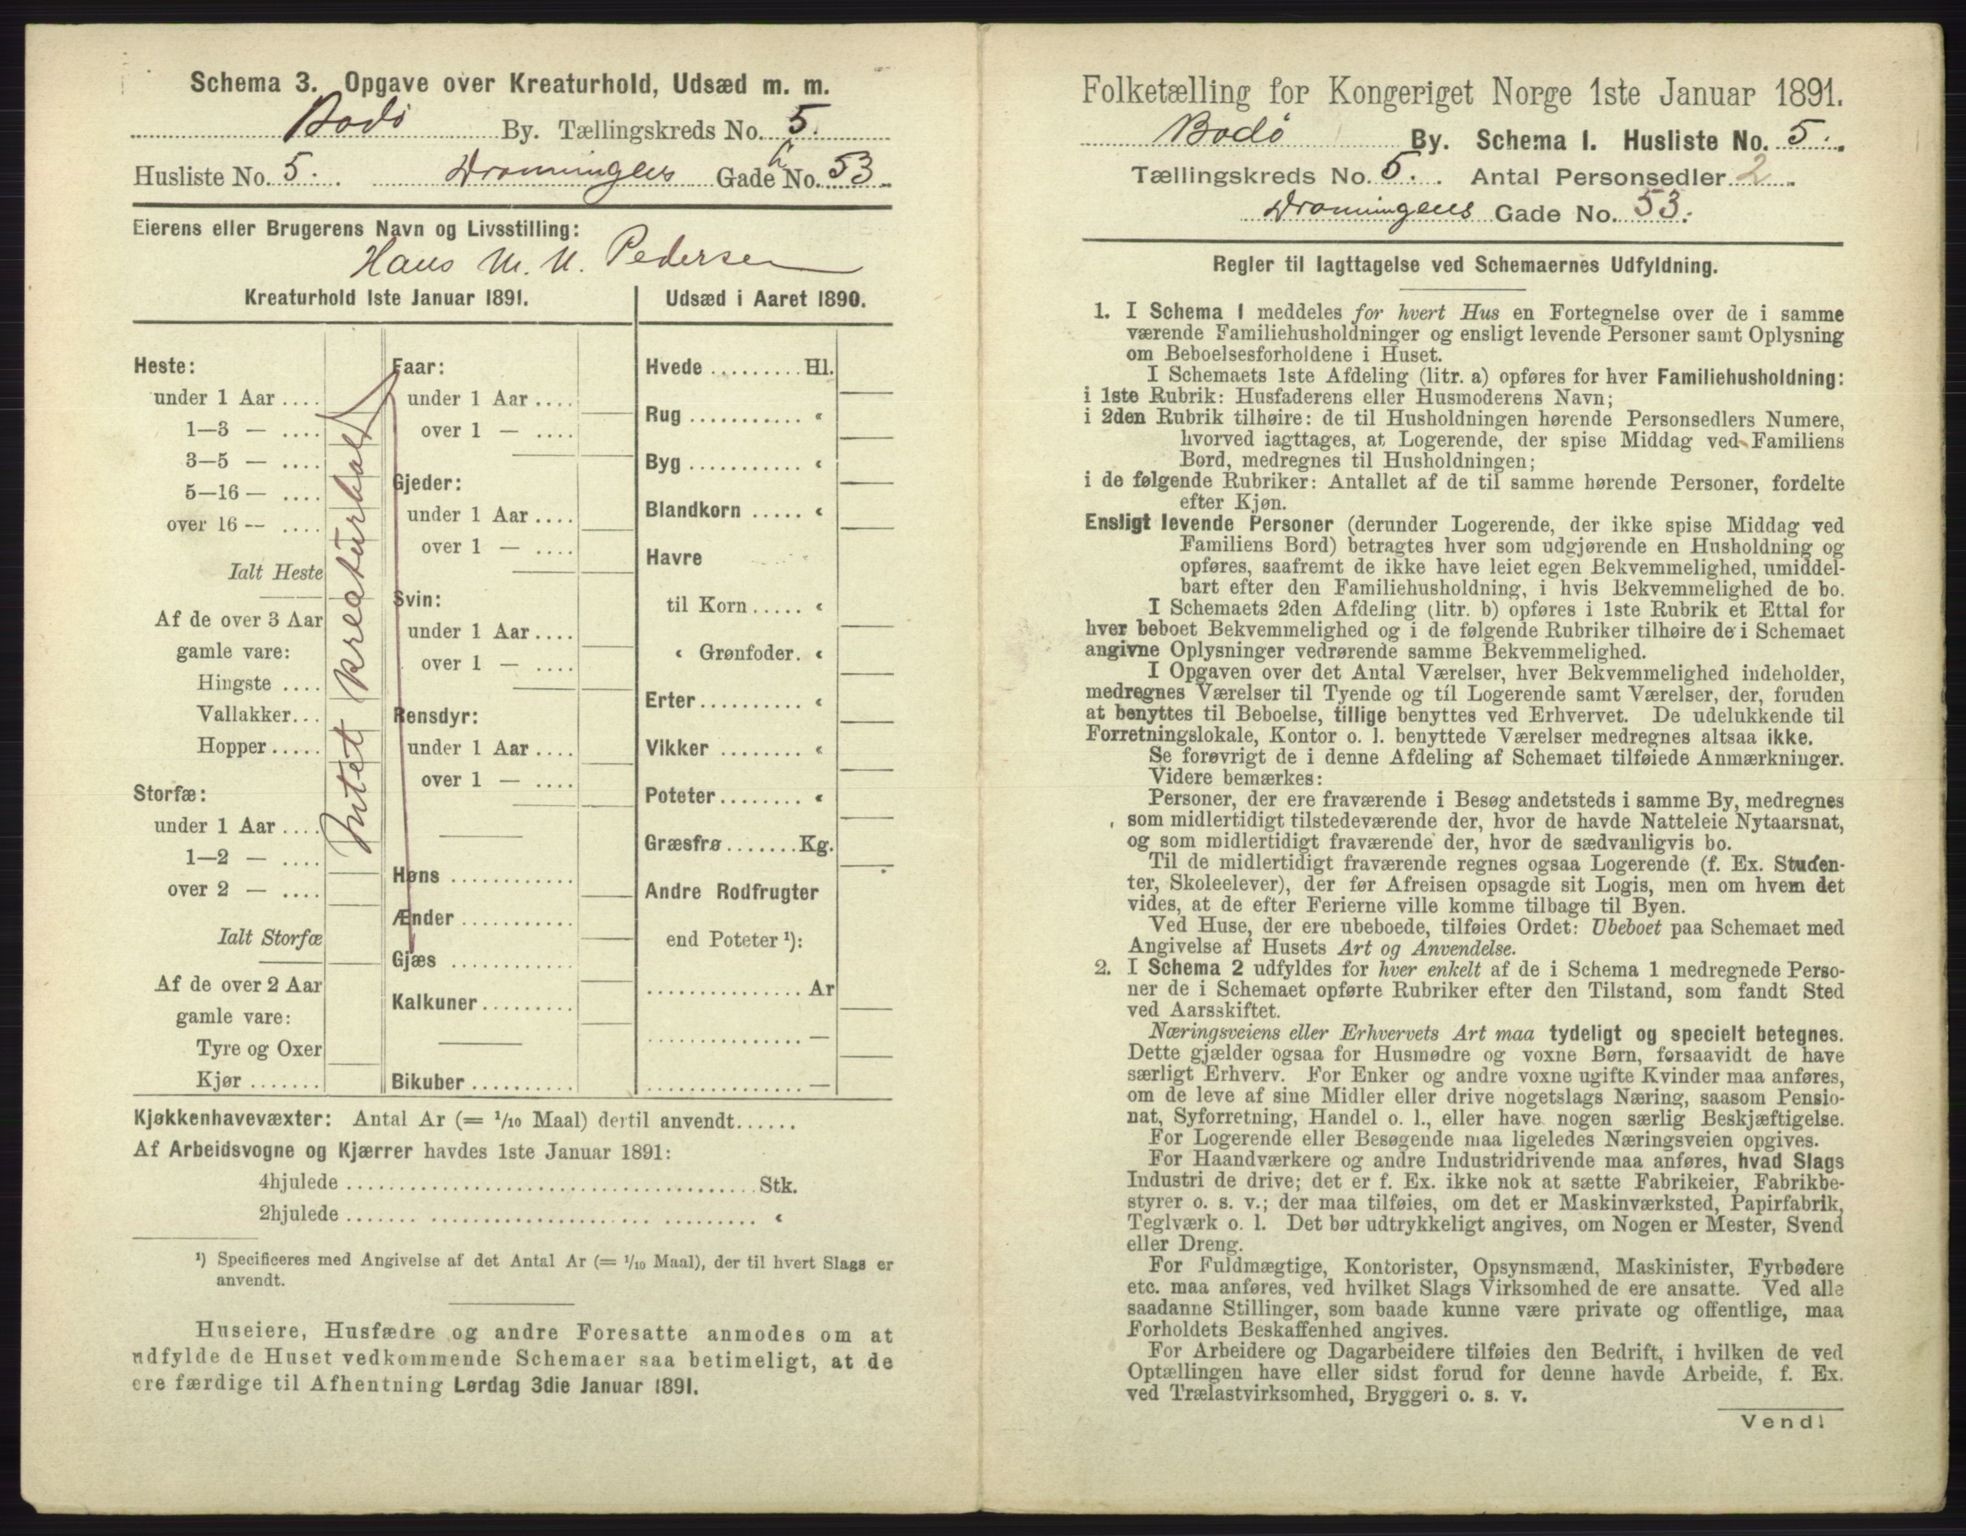 Schema 3. Opgave over Kreaturhold, Udsæd m. m.
Bodö By. Tællingskreds No. 5.
Husliste No. 5. Dronningens Gade No. 53.
Eierens eller Brugerens Navn og Livsstilling:
Hans M. N. Pedersen
Kreaturhold 1ste Januar 1891.
Heste:
under 1 Aar ....
1—3 — ....
3—5 — ....
5—16 — ....
over 16 — ....
Ialt Heste
Af de over 3 Aar
gamle vare:
Hingste ....
Vallakker...
Hopper .....
Storfæ:
under 1 Aar ....
1—2 — ....
over 2 — ....
Ialt Storfæ
Af de over 2 Aar
gamle vare:
Tyre og Oxer
Kjør .......
Intet kreaturhold
Faar:
under 1 Aar ....
over 1 — ....
Gjeder:
under 1 Aar ....
over 1 — ....
Svin:
under 1 Aar ....
over 1 — ....
Rensdyr:
under 1 Aar ....
over 1 — ....
Høns ............
Ænder ...........
Gjæs ............
Kalkuner.........
Bikuber ..........
Udsæd i Aaret 1890.
Hvede ......... Hl.
Rug ........... «
Byg ........... «
Blandkorn ..... «
Havre
til Korn ..... «
« Grønfoder. «
Erter .......... «
Vikker ........ «
Poteter ........ «
Græsfrø ....... Kg.
Andre Rodfrugter
end Poteter ¹):
............... Ar
............... —
............... —
Kjøkkenhavevæxter: Antal Ar (= 1/10 Maal) dertil anvendt......
Af Arbeidsvogne og Kjærrer havdes 1ste Januar 1891:
4hjulede ........................................ Stk.
2hjulede ........................................ «
¹) Specificeres med Angivelse af det Antal Ar (= 1/10 Maal), der til hvert Slags er
anvendt.
Huseiere, Husfædre og andre Foresatte anmodes om at
udfylde de Huset vedkommende Schemaer saa betimeligt, at de
ere færdige til Afhentning Lørdag 3die Januar 1891.
Folketælling for Kongeriget Norge 1ste Januar 1891.
Bodö By. Schema I. Husliste No. 5.
Tællingskreds No. 5. Antal Personsedler 2
Dronningens Gade No. 53.
Regler til Iagttagelse ved Schemaernes Udfyldning.
1. I Schema 1 meddeles for hvert Hus en Fortegnelse over de i samme
værende Familiehusholdninger og ensligt levende Personer samt Oplysning
om Beboelsesforholdene i Huset.
I Schemaets 1ste Afdeling (litr. a) opføres for hver Familiehusholdning:
i 1ste Rubrik: Husfaderens eller Husmoderens Navn;
i 2den Rubrik tilhøire: de til Husholdningen hørende Personsedlers Numere,
hvorved iagttages, at Logerende, der spise Middag ved Familiens
Bord, medregnes til Husholdningen;
i de følgende Rubriker: Antallet af de til samme hørende Personer, fordelte
efter Kjøn.
Ensligt levende Personer (derunder Logerende, der ikke spise Middag ved
Familiens Bord) betragtes hver som udgjørende en Husholdning og
opføres, saafremt de ikke have leiet egen Bekvemmelighed, umiddel-
bart efter den Familiehusholdning, i hvis Bekvemmelighed de bo.
I Schemaets 2den Afdeling (litr. b) opføres i 1ste Rubrik et Ettal for
hver beboet Bekvemmelighed og i de følgende Rubriker tilhøire de i Schemaet
angivne Oplysninger vedrørende samme Bekvemmelighed.
I Opgaven over det Antal Værelser, hver Bekvemmelighed indeholder,
medregnes Værelser til Tyende og til Logerende samt Værelser, der, foruden
at benyttes til Beboelse, tillige benyttes ved Erhvervet. De udelukkende til
Forretningslokale, Kontor o. l. benyttede Værelser medregnes altsaa ikke.
Se forøvrigt de i denne Afdeling af Schemaet tilføiede Anmærkninger.
Videre bemærkes:
Personer, der ere fraværende i Besøg andetsteds i samme By, medregnes
som midlertidigt tilstedeværende der, hvor de havde Natteleie Nytaarsnat,
og som midlertidigt fraværende der, hvor de sædvanligvis bo.
Til de midlertidigt fraværende regnes ogsaa Logerende (f. Ex. Studen-
ter, Skoleelever), der før Afreisen opsagde sit Logis, men om hvem det
vides, at de efter Ferierne ville komme tilbage til Byen.
Ved Huse, der ere ubeboede, tilføies Ordet: Ubeboet paa Schemaet med
Angivelse af Husets Art og Anvendelse.
2. I Schema 2 udfyldes for hver enkelt af de i Schema 1 medregnede Perso-
ner de i Schemaet opførte Rubriker efter den Tilstand, som fandt Sted
ved Aarsskiftet.
Næringsveiens eller Erhvervets Art maa tydeligt og specielt betegnes.
Dette gjælder ogsaa for Husmødre og voxne Børn, forsaavidt de have
særligt Erhverv. For Enker og andre voxne ugifte Kvinder maa anføres,
om de leve af sine Midler eller drive nogetslags Næring, saasom Pensio-
nat, Syforretning, Handel o. l., eller have nogen særlig Beskjæftigelse.
For Logerende eller Besøgende maa ligeledes Næringsveien opgives.
For Haandværkere og andre Industridrivende maa anføres, hvad Slags
Industri de drive; det er f. Ex. ikke nok at sætte Fabrikeier, Fabrikbe-
styrer o. s. v.; der maa tilføies, om det er Maskinværksted, Papirfabrik,
Teglværk o. l. Det bør udtrykkeligt angives, om Nogen er Mester, Svend
eller Dreng.
For Fuldmægtige, Kontorister, Opsynsmænd, Maskinister, Fyrbødere
etc. maa anføres, ved hvilket Slags Virksomhed de ere ansatte. Ved alle
saadanne Stillinger, som baade kunne være private og offentlige, maa
Forholdets Beskaffenhed angives.
For Arbeidere og Dagarbeidere tilføies den Bedrift, i hvilken de ved
Optællingen have eller sidst forud for denne havde Arbeide, f. Ex.
ved Trælastvirksomhed, Bryggeri o. s. v.
Vend!